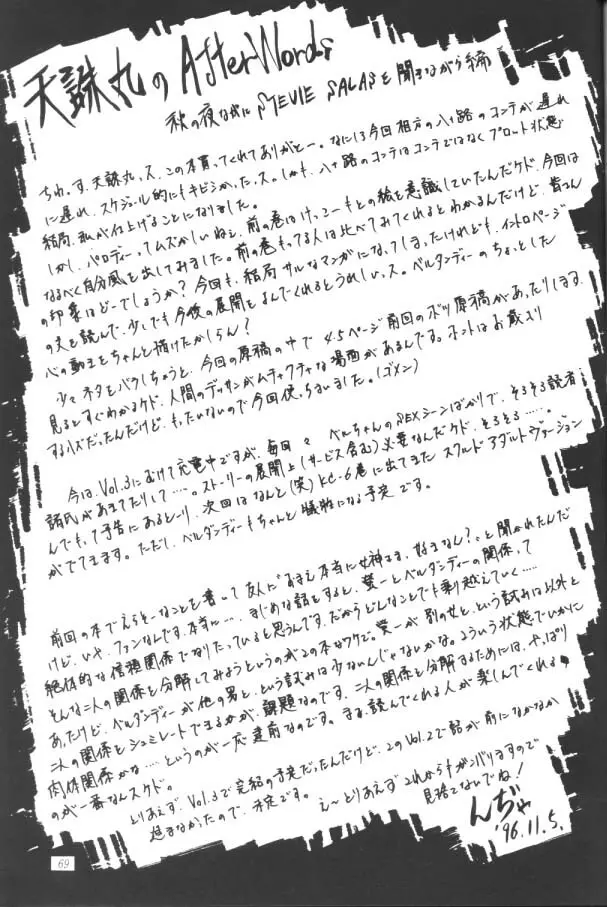 天誅丸の After Words
秋の夜ながに STEVIE SALASを聞きながら 締
ちわ。す、天誅丸ッス、この本買ってくれてありがとー。なにぶん今回相方の八十路のコンテが遅れ
に遅れ、スケジュール的にもキビシかったッス。しかも、八十路のコンテはコンテではなくプロット状態
結局、私が仕上げることになりました。
しかし、パロディーってムズかしいねぇ、前の巻はけっこーもとの絵を意識していたんだケド、今回は
なるべく自分風を出してみました。前の巻もってる人は比べてみてくれるとわかるんだけど、皆さん
の印象はどーでしょうか? 今回も、結局サルなマンガになってしまったけれども、イントロページ
の文を読んで、少しでも今後の展開をよんでくれるとうれしいッス。ベルダンディーのちょっとした
心の動きをちゃんと描けたかしらん?
少々ネタをバラしちゃうと、今回の原稿の中で 4.5ページ前回のボツ原稿があったりします。
見るとすぐわかるケド、人間のデッサンがムチャクチャな場面があるんです。ホントはお蔵入り
するハズだったんだけど、もったいないので今回使っちまいました。(ゴメン)
今は、Vol.3にむけて充電中ですが、毎回々 ベルちゃんのSEXシーンばかりで、そろそろ読者
諸氏があきてたりして…。ストーリーの展開上(サービス含む)必要なんだケド、そろそろ……。
んでもって予告にあるとーり、次回はなんと(笑)KC-6巻に出てきた スクルド アダルトヴァージョン
がでてきます。ただし、ベルダンディーもちゃんと犠牲になる予定です。
前回の本でえらそーなことを書いて友人に"おまえ本当に女神さま、好きなん?"と聞かれたんだ
けど、いや、ファンなんです。本当に…。まじめな話をすると、螢一とベルダンディーの関係って
絶体的な信頼関係でなりたっていると思うんです。だからどんなことでも乗り越えていく……
そんな二人の関係を分解してみようというのがこの本なワケで。螢一が別の女と、という試みは以外と
あったけど、ベルダンディーが他の男と、という試みは少ないんじゃないかな。こういう状態でいかに
二人の関係をシュミレートできるかが、課題なのです。二人の関係を分解するためには、やっぱり
肉体関係かな…。というのが一応建前なのです。まぁ、読んでくれる人が楽しんでくれる
のが一番なんスケド。
とりあえず、Vol.3で完結の予定だったんだけど、このVol.2で話が前になかなか
進まなかったので、未定です。
え〜とりあえずこれからもガンバリますので
見捨てないでね!
んぢゃ
'96.11.5.
69